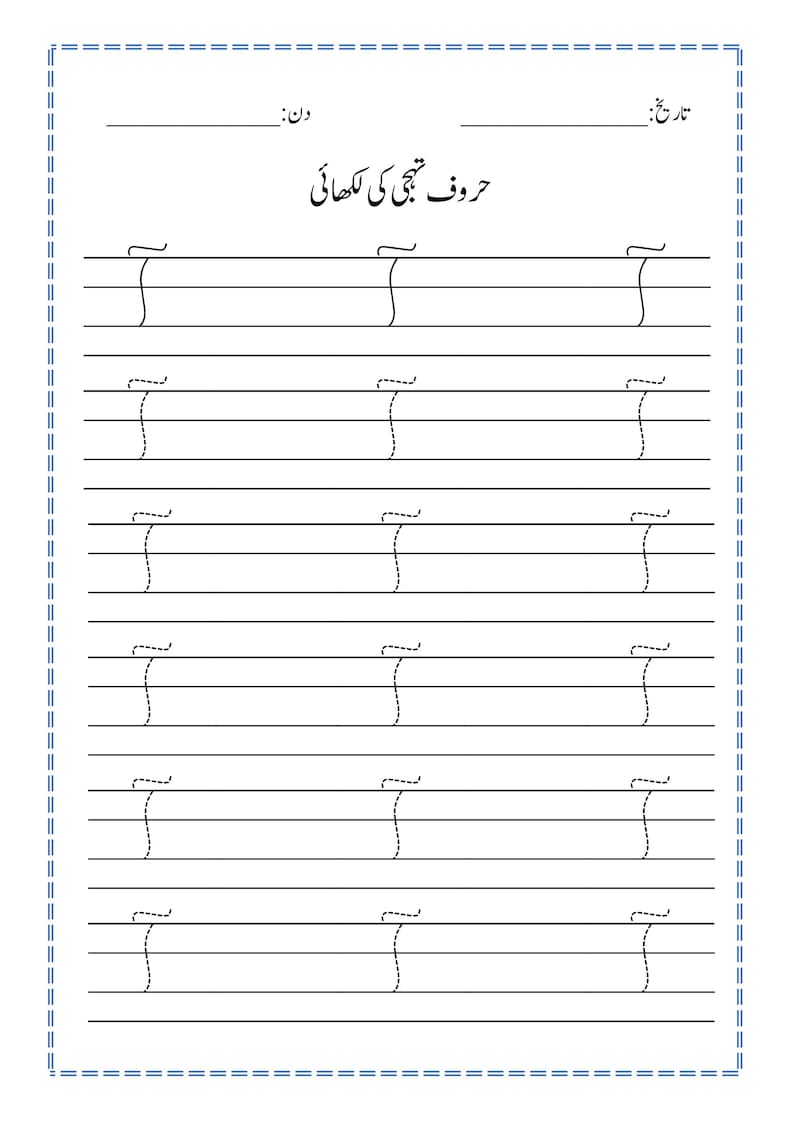 تاریخ:____________ دن:____________
حروف تہجی کی لکھائی
آ آ آ
آ آ آ
آ آ آ
آ آ آ
آ آ آ
آ آ آ